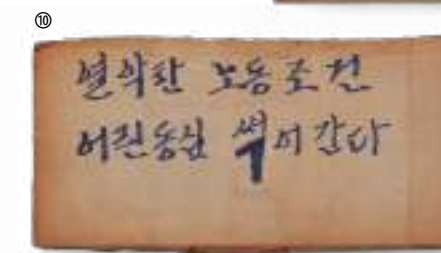 ⑩
열악한 노동조건
어린동심 썩어간다